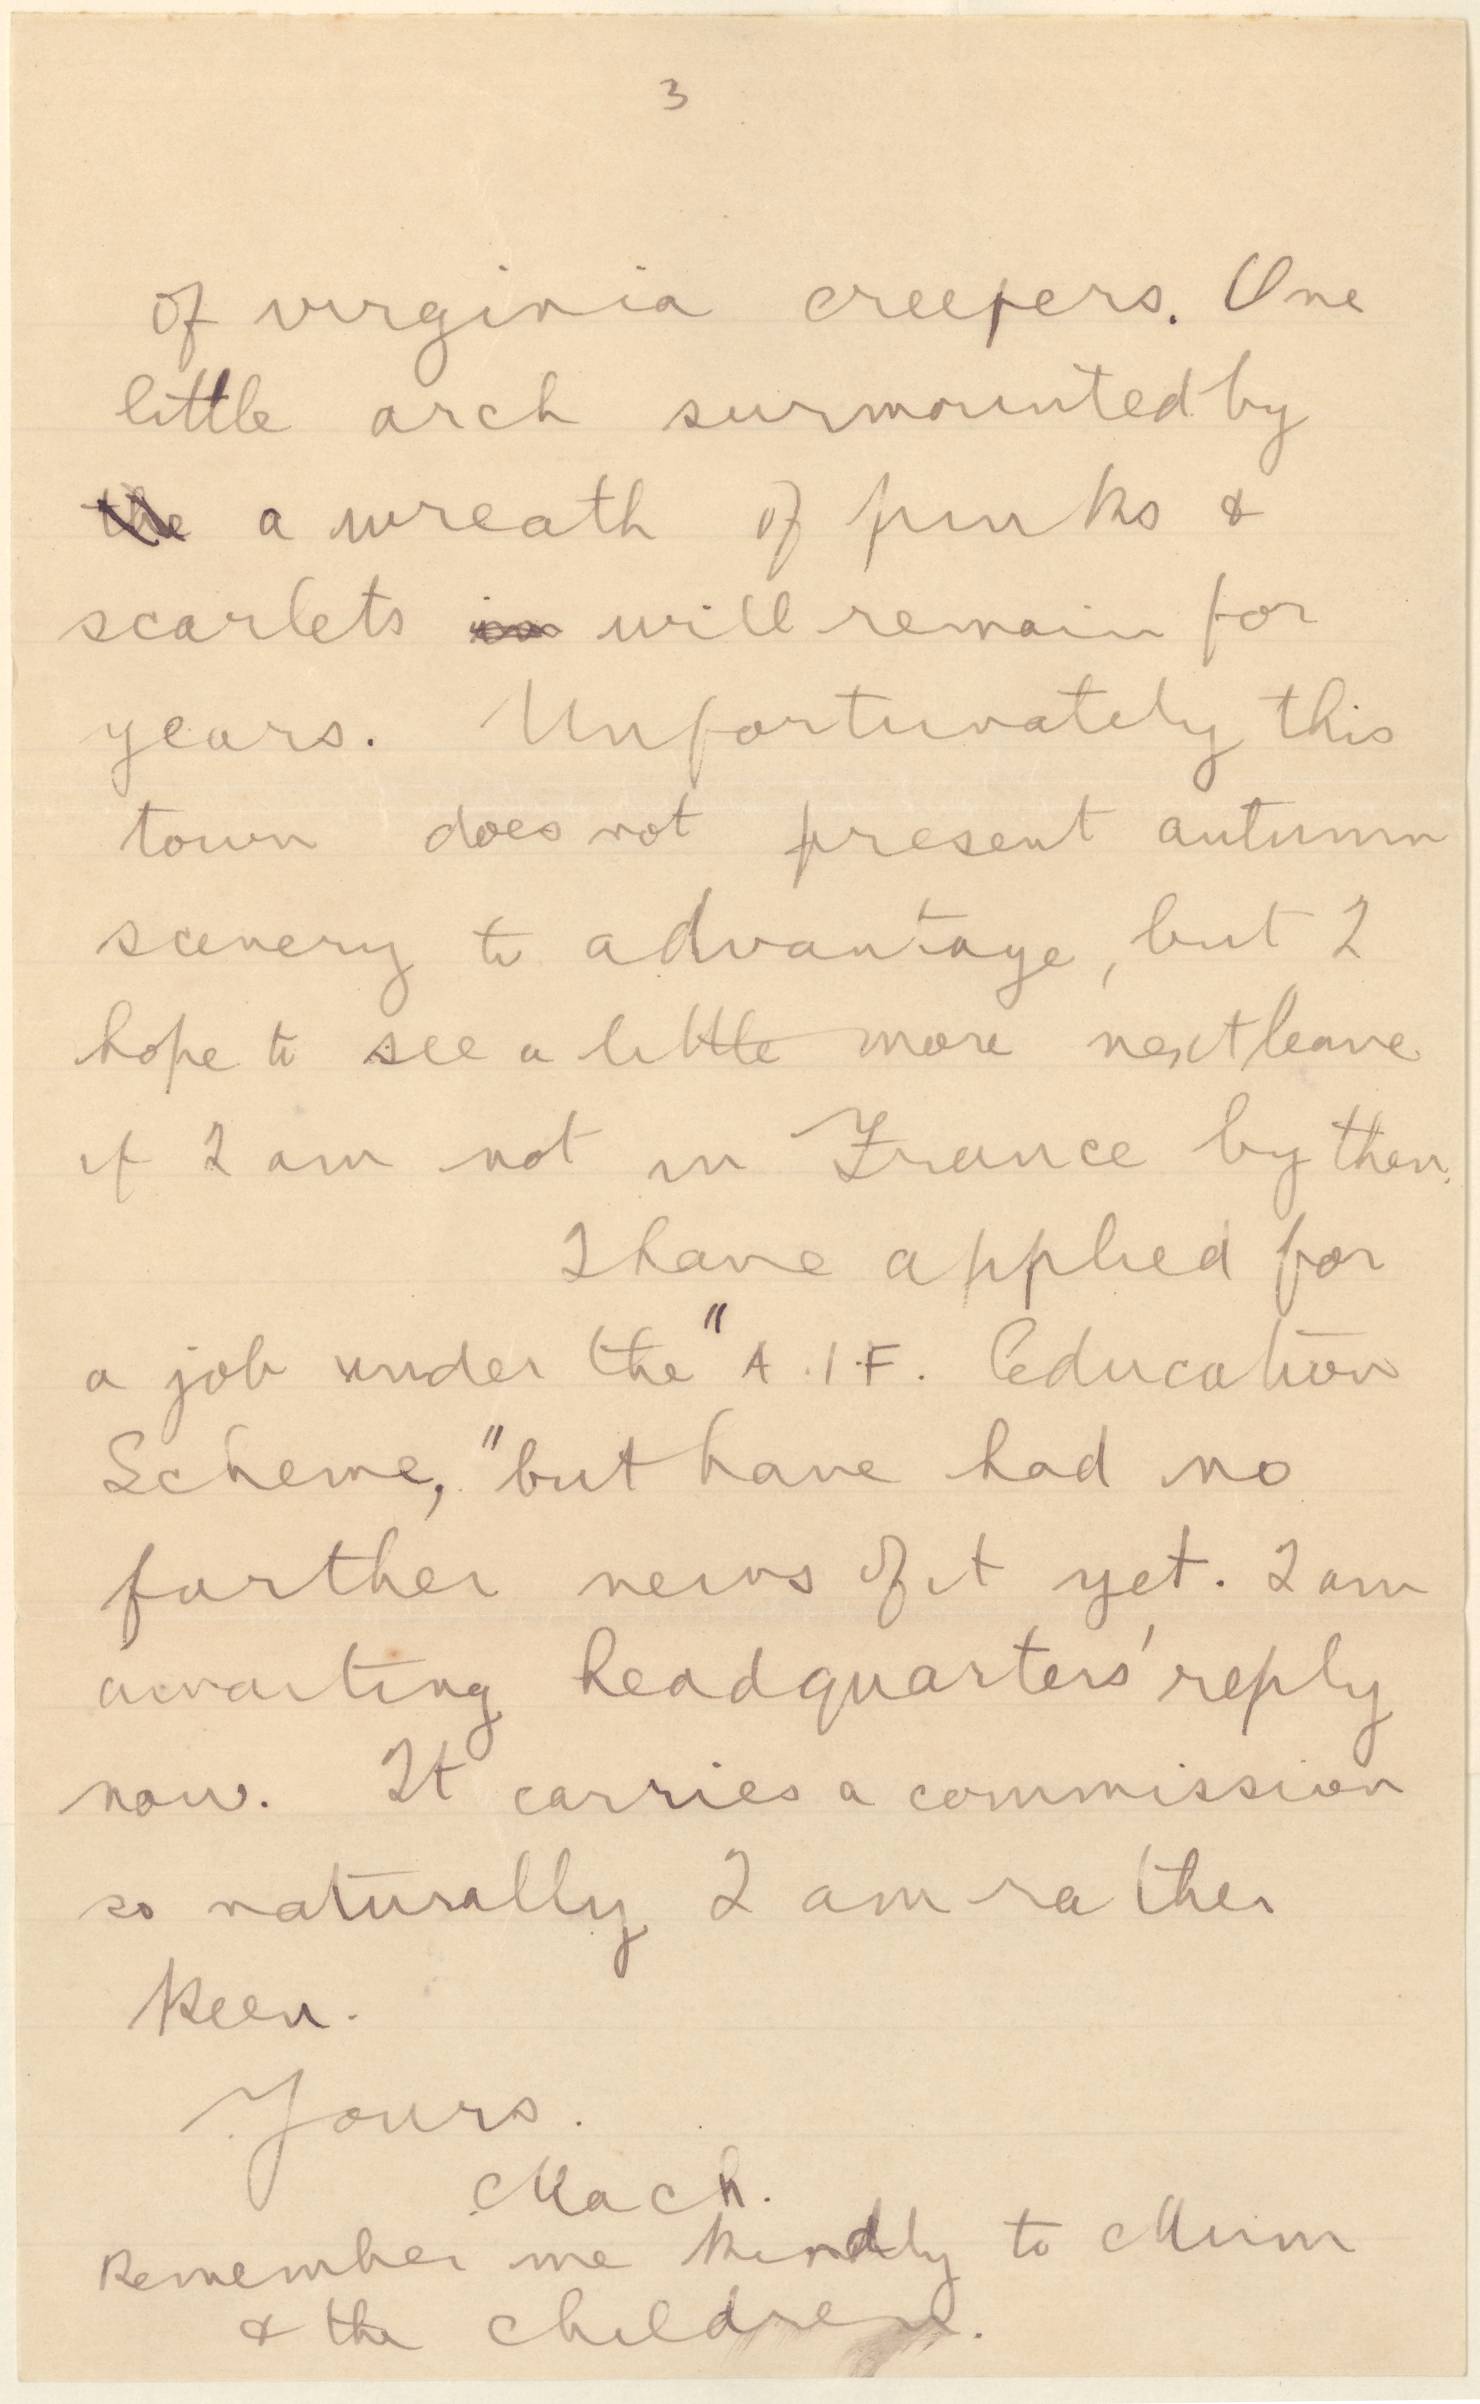 3
of virginia creepers. One
little arch surmounted by
the a wreath of pinks &
scarlets in will remain for
years. Unfortunately this
town does not present autumn
scenery to advantage, but I
hope to see a little more next leave
if I am not in France by then.
I have applied for
a job under the "A.I.F. Education
Scheme," but have had no
further news of it yet. I am
awaiting headquarters' reply
now. It carries a commission
so naturally I am rather
keen.
Yours.
Mach.
Remember me kindly to Mum
& the children.